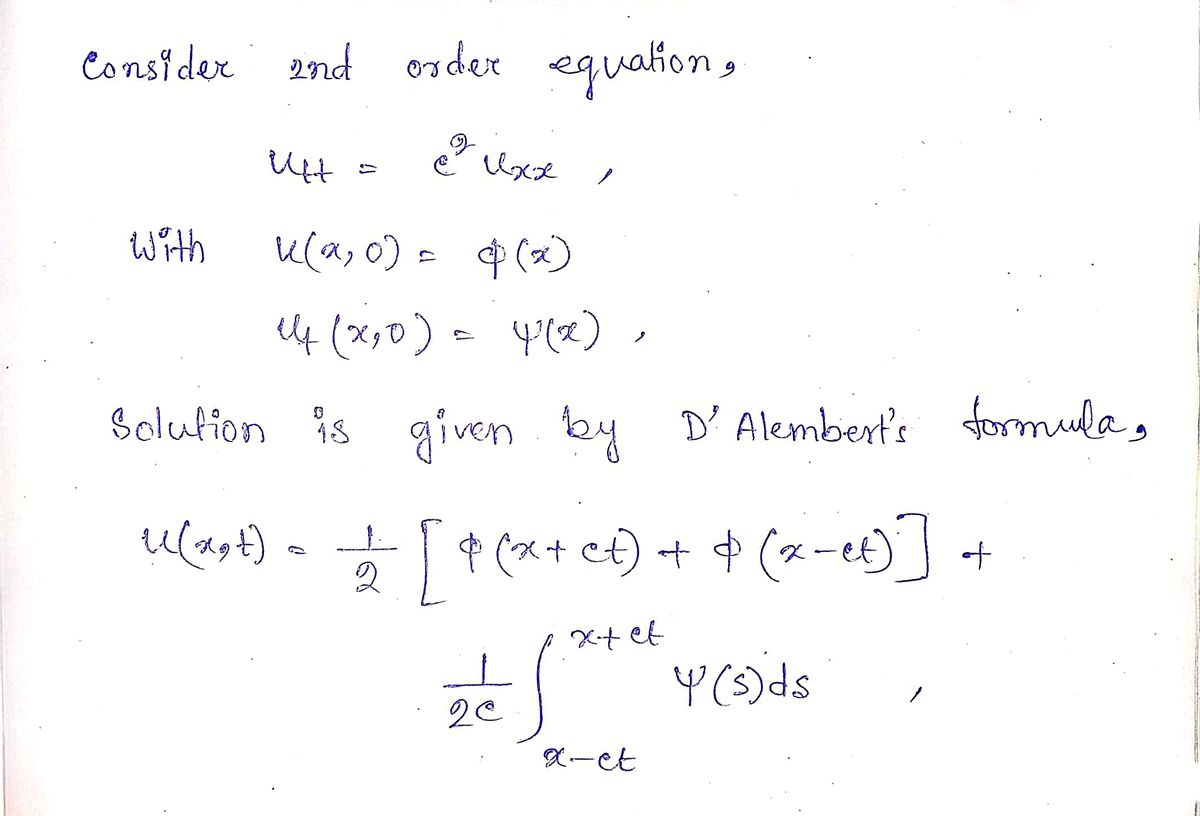 Consider 2nd order equation,
u_tt = c² u_xx ,
With u(x,0) = φ(x)
u_t (x,0) = ψ(x) ,
Solution is given by D'Alembert's formula,
u(x,t) = 1/2 [ φ(x+ct) + φ(x-ct) ] +
1/2c ∫_{x-ct}^{x+ct} ψ(s)ds ,